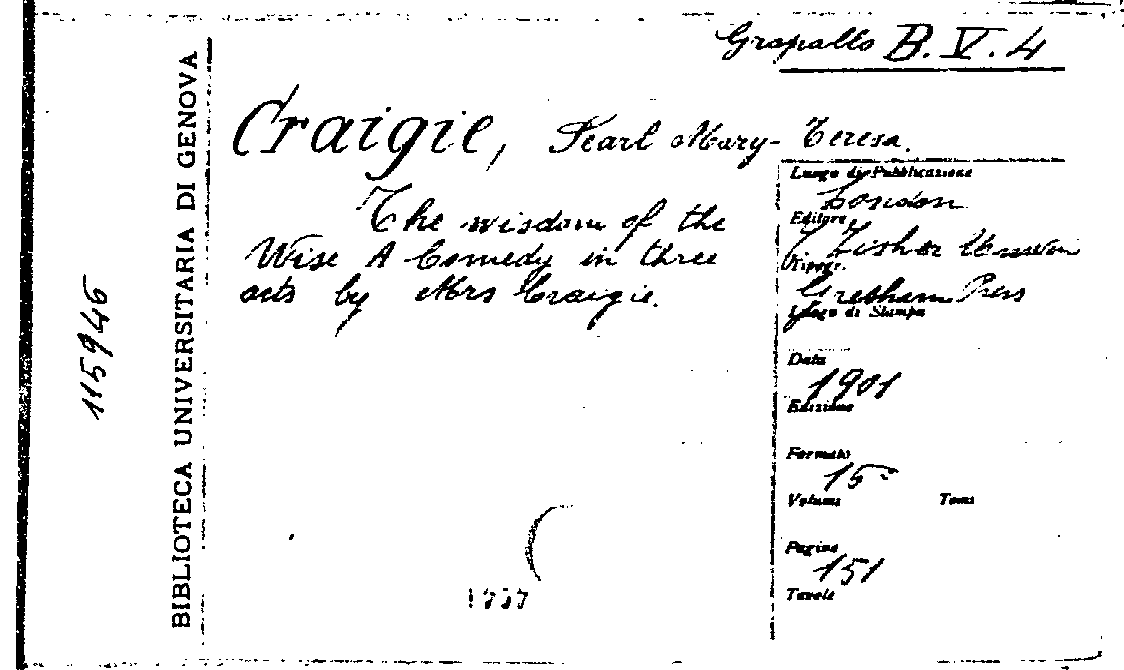 Grapallo B. V. 4
Craigie, Pearl Mary-Teresa.
The wisdom of the
Wise A Comedy in three
acts by Mrs Craigie.
Luogo di Pubblicazione
London
Editore
T Fisher Unwin
Tipogr.
Gresham Press
Luogo di Stampa
Data
1901
Edizione
Formato
15°
Volume Tomi
Pagine
151
Tavole
BIBLIOTECA UNIVERSITARIA DI GENOVA
115946